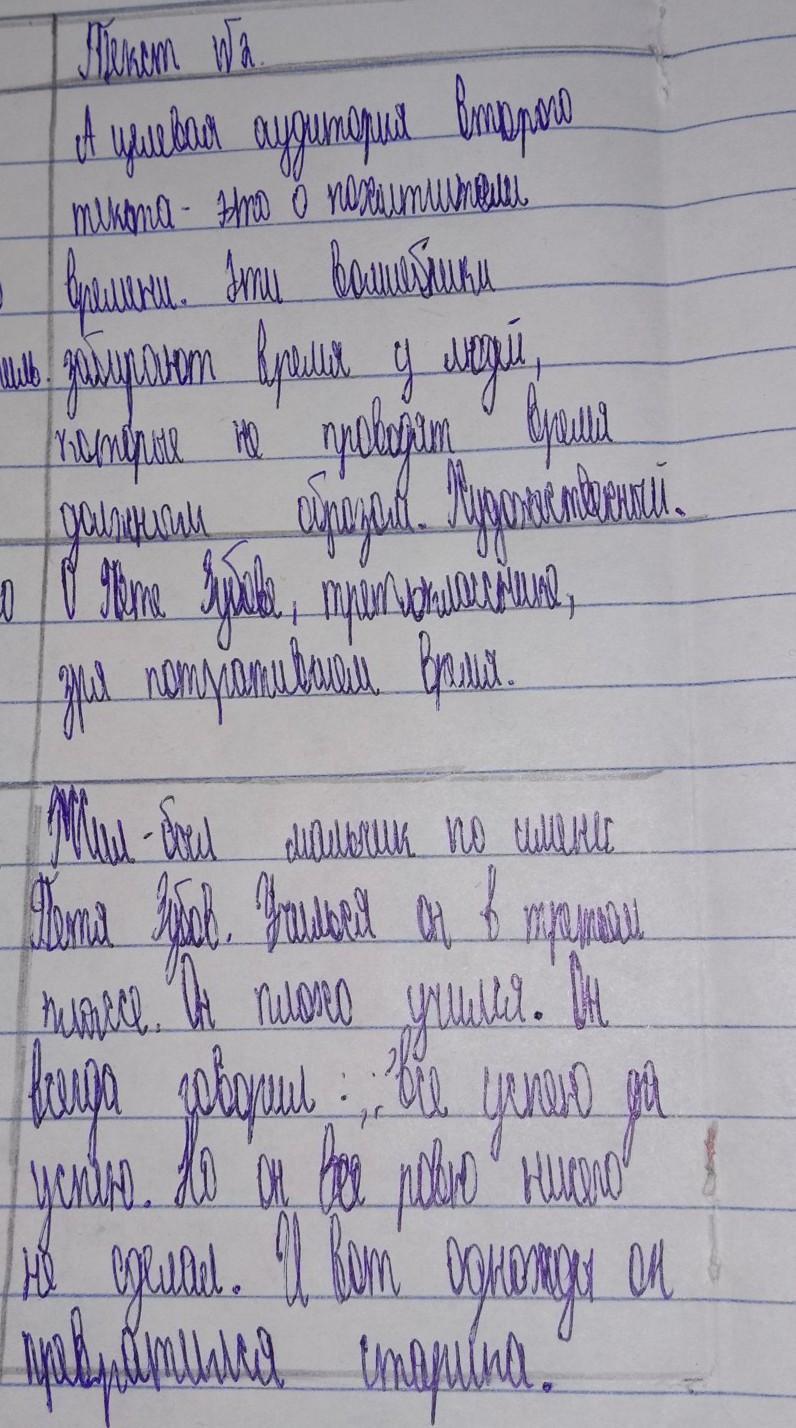 Текст №2.
А целевая аудитория второго
текста - это о похитители
времени. Эти волшебники
забирают время у людей,
которые не проводят время
должном образом. Художественный.
О Пете Зубове, третьокласснике,
зря потратившем время.
Жил-был мальчик по имени
Петя Зубов. Учился он в третьем
классе. Он плохо учился. Он
всегда говорил: „Все успею да
успею. Но он все ровно ничего
не сделал. И вот однажды он
превратился старика.